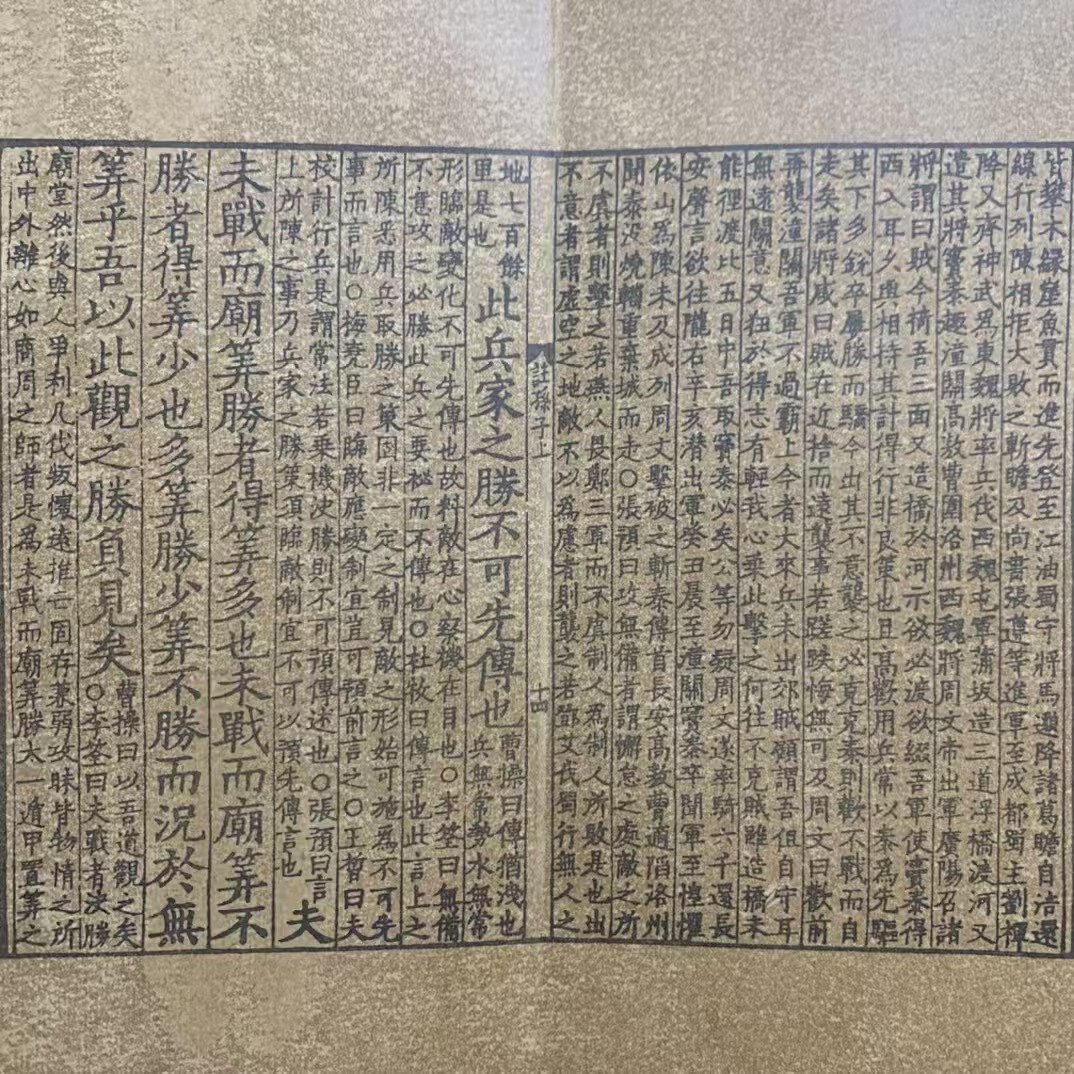 皆攀木緣崖魚貫而進先登至江油蜀守將馬邈降諸葛瞻自涪還
緜行列陳相拒大敗之斬瞻及尚書張遵等進軍至成都蜀主劉禪
降又齊神武爲東魏將率兵伐西魏屯軍蒲坂造三道浮橋渡河又
遣其將竇泰趣潼關高敖曹圍洛州西魏將周文帝出軍廣陽召諸
將謂曰賊今掎吾三面又造橋於河示欲必渡欲綴吾軍使竇泰得
西入耳久與相持其計得行非良策也且高歡用兵常以泰爲先驅
其下多銳卒屢勝而驕今出其不意襲之必克克泰則歡不戰而自
走矣諸將咸曰賊在近捨而遠襲事若蹉跌悔無可及周文曰歡前
再襲潼關吾軍不過霸上今者大來兵未出郊賊顧謂吾但自守耳
無遠鬭意又狃於得志有輕我心乘此擊之何往不克賊雖造橋未
能徑渡比五日中吾取竇泰必矣公等勿疑周文遂率騎六千還長
安聲言欲往隴右辛亥潜出軍癸丑晨至潼關竇泰卒聞軍至惶懼
依山爲陳未及成列周文擊破之斬泰傳首長安高敖曹適陷洛州
聞泰没燒輜重棄城而走○張預曰攻無備者謂懈怠之處敵之所
不虞者則擊之若燕人畏鄭三軍而不虞制人爲制人所敗是也出
不意者謂虛空之地敵不以爲慮者則襲之若鄧艾伐蜀行無人之
註孫子上 十四
地七百餘
里是也
此兵家之勝不可先傳也
曹操曰傳猶洩也
兵無常勢水無常
形臨敵變化不可先傳也故料敵在心察機在目也○李筌曰無備
不意攻之必勝此兵之要祕而不傳也○杜牧曰傳言也此言上之
所陳悉用兵取勝之策固非一定之制見敵之形始可施爲不可先
事而言也○梅堯臣曰臨敵應變制宜豈可預前言之○王晳曰夫
校計行兵是謂常法若乘機決勝則不可預傳述也○張預曰言
上所陳之事乃兵家之勝策須臨敵制宜不可以預先傳言也
夫
未戰而廟筭勝者得筭多也未戰而廟筭不
勝者得筭少也多筭勝少筭不勝而況於無
筭乎吾以此觀之勝負見矣
曹操曰以吾道觀之矣
○李筌曰夫戰者決勝
廟堂然後與人爭利凡伐叛懷遠推亡固存兼弱攻昧皆物情之所
出中外離心如商周之師者是爲未戰而廟筭勝太一遁甲置筭之